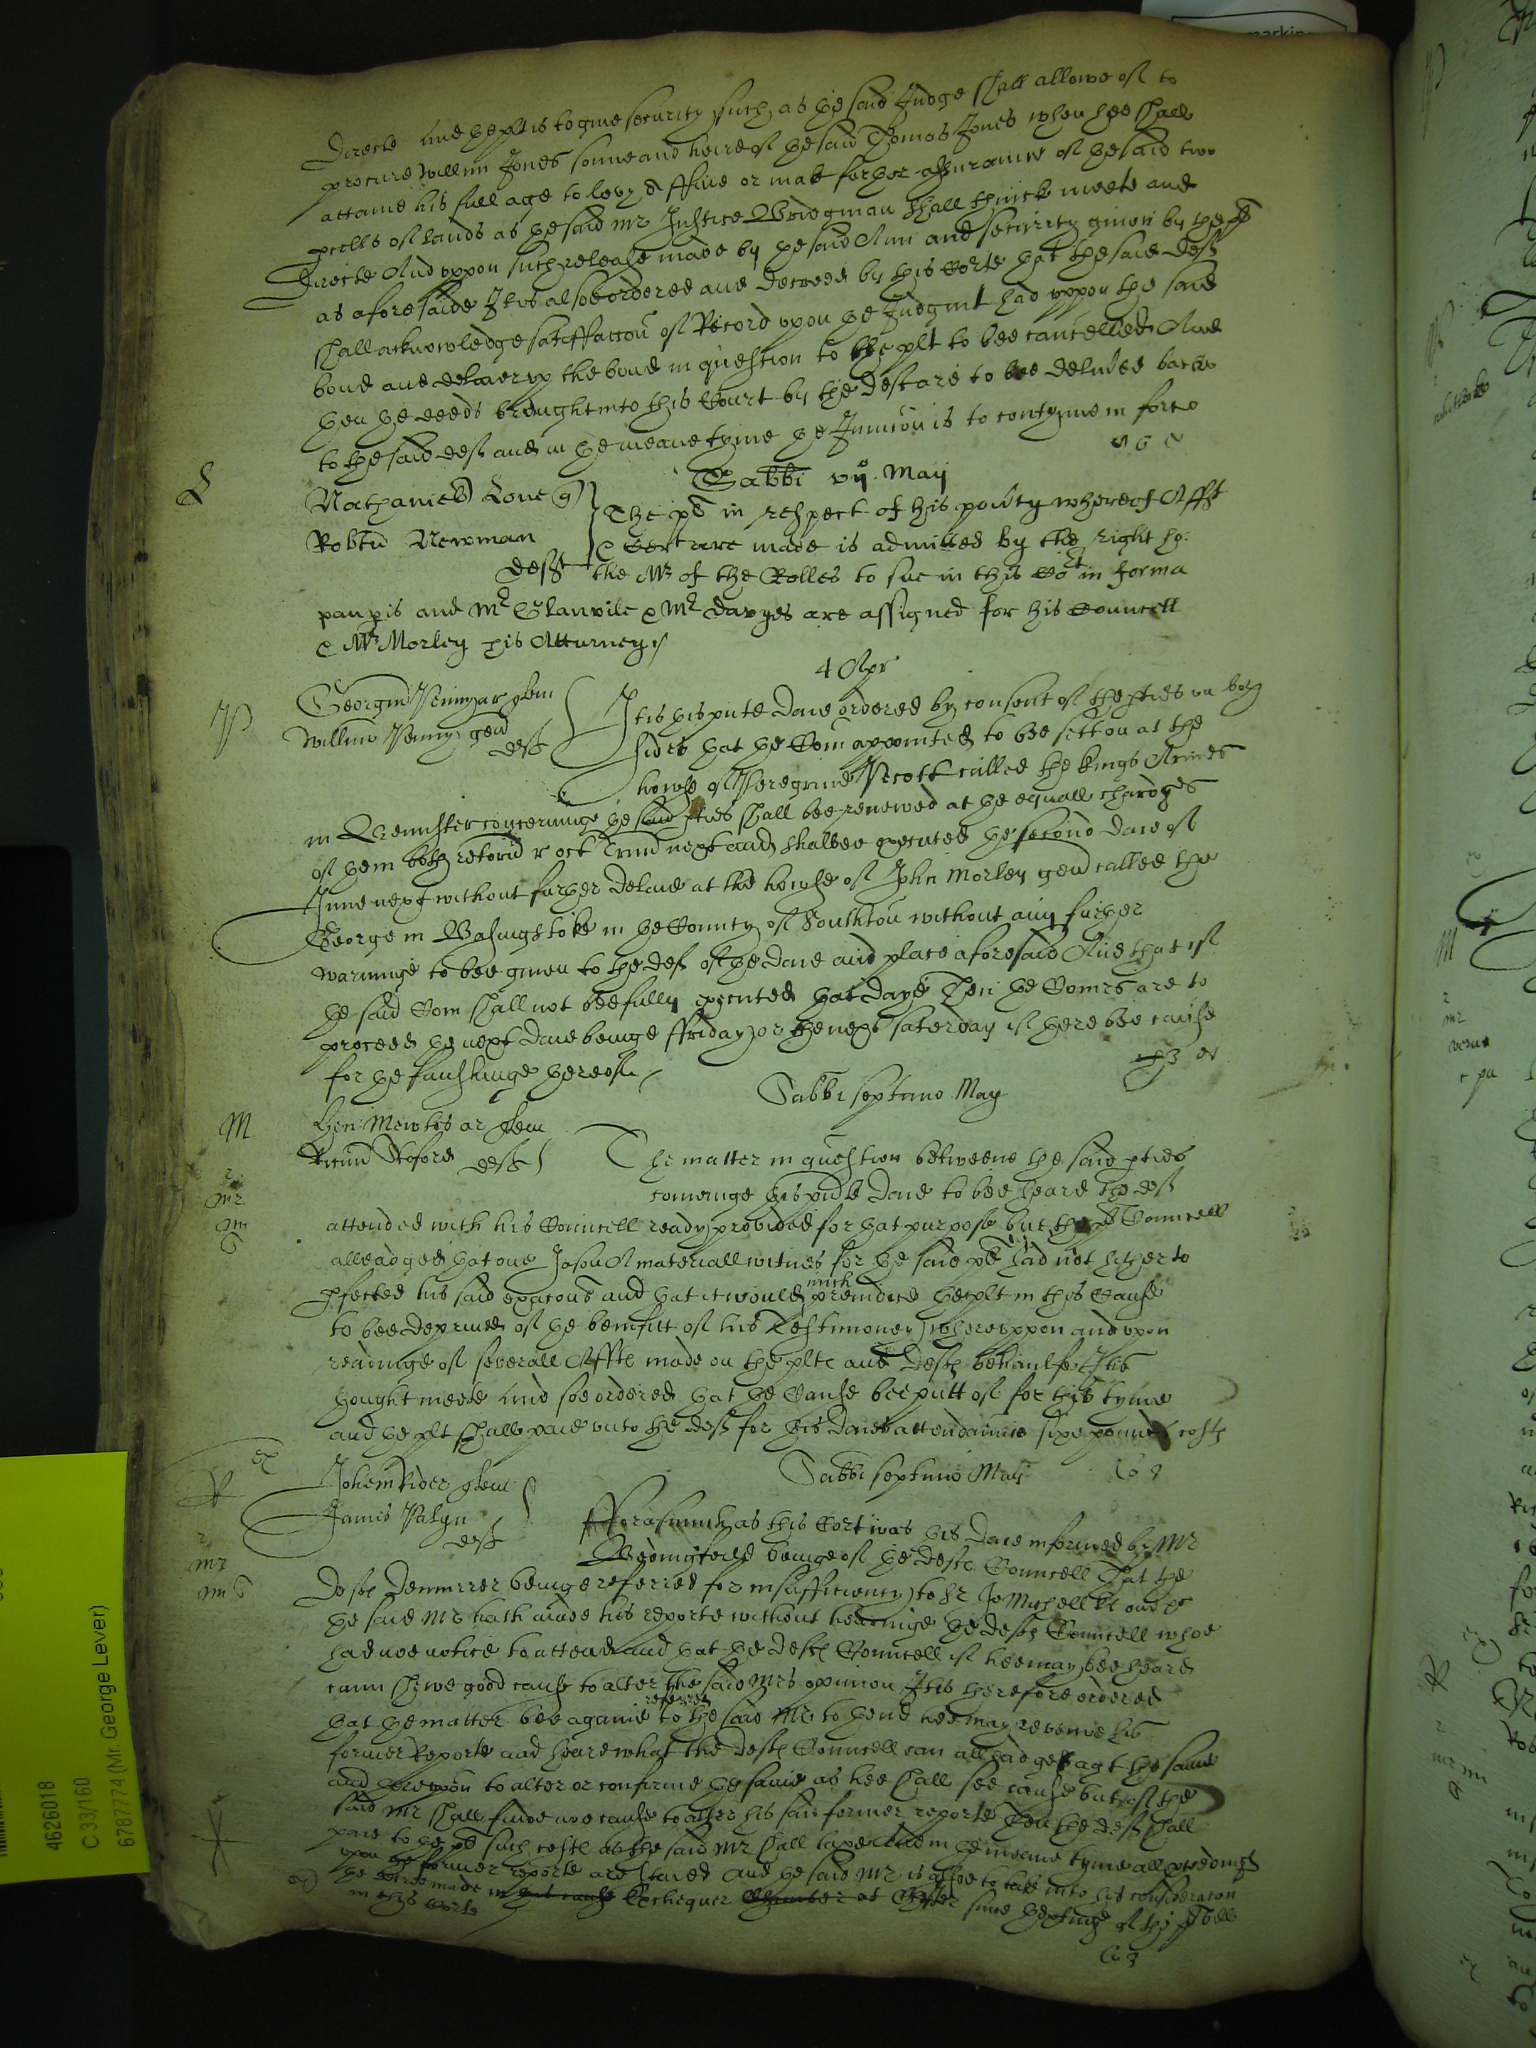 directe And the plt is to give security such as the said Judge shall allowe of to
procure Willm Jones sonne and heire of the said Thomas Jones when hee shall
attaine his full age to levy a ffine or make further assurance of the said two
pcells of lands as the said Mr Justice Bridgman shall thinck meete and
directe And uppon such release made by the said Ann and security given by the pt
as aforesaide It is alsoe ordered and decreed by this Corte that the said deft
shall acknowledge satisffaccon of Record upon the Judgmt had uppon the said
bond and deliver up the bond in question to the plt to bee cancelled And
then the deeds brought into this Court by the deft are to bee delivered backe
to the said deft and in the meane tyme the Iniunccon is to contynue in force
L
Sabbi vij May
Nathaniell Love q
The pt in respect of his povtie whereof Afft
Robtu Newman
& Certiare made is admitted by the right ho:
deft the Mr of the Rolles to sue in this Cort in forma
paupis and Mr Glanvile & Mr Davyes are assigned for his Councell
& Mr Morley his Atturney
4 Apr
P
Georgiu Penny ar quem
It is this psnte daie ordered by consent of the pties on both
Willmu Penny gen deft
sides that the Com appointed to bee sett on at the
howse of Peregrine called the Kings Armes
in concerninge the said pties shall bee renewed at the equall chardges
of them both retorn r oct Trin next and shalbee executed the second daie of
June next without further delaie at the howse of John Morley gen called the
George in Basingstoke in the County of Southton without any further
warninge to bee given to the deft of the daie and place aforesaid And that if
the said Com shall not bee fully executed that daye Then the Comrs are to
proceed the next daie beinge ffriday or the next saterday if there bee cause
for the finishinge thereof
Sabbi septimo May
M
Hen: Mewtis ar quem
Ricum deft
The matter in question betweene the said pties
cominge this psnte daie to bee heard the deft
attended with his Councell ready provided for that purpose but the pt Councell
alleadged that one Jason A materiall witnes for the said pt had not hitherto
pfected his said exacons and that it would much preiudice the plt in this Cause
to bee deprived of the benifitt of his Testimoney whereuppon and upon
readinge of severall Affts made on the plts and defts behaulfe It is
thought meete and soe ordered that the Cause bee putt of for this tyme
and the plt shall paie unto the deft for this daies attendaunce sixe pounds costs
Sabbi septimo Maij
R
Johem Rider quem
Jamis deft
fforasmuch as this Cort was this daie informed by Mr
beinge of the defts Councell That the
defts Demurrer beinge referred for insufficiency to Sr Jo Michell kt one &c
the said Mr hath made his reporte without hearinge the defts Councell whoe
had noe notice to attend and that the defts Councell if hee may bee heard
cann shewe good cause to alter the said Mrs opinion It is therefore ordered
that the matter bee againe referred to the said Mr to thend hee may reveiwe his
former Reporte and heare what the defts Councell can alleadge agt the same
and thereupon to alter or confirme the same as hee shall see cause but if the
said Mr shall finde noe cause to alter his said former reporte Then the deft shall
paie to the pt such costs as the said Mr shall taxe And in the meane tyme all pceedings
upon the former reporte are staied And the said Mr is alsoe to take into his consideracon
the made in that cause Exchequer Chamber at Chester since the of the pts bill
in this Corte
4626018
C 33/160
67877774 (Mr. George Lever)